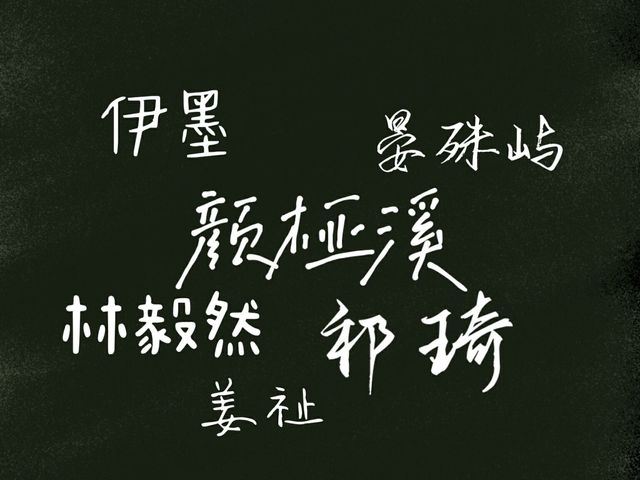 伊墨
晏殊屿
颜桠溪
林毅然
祁琦
姜祉